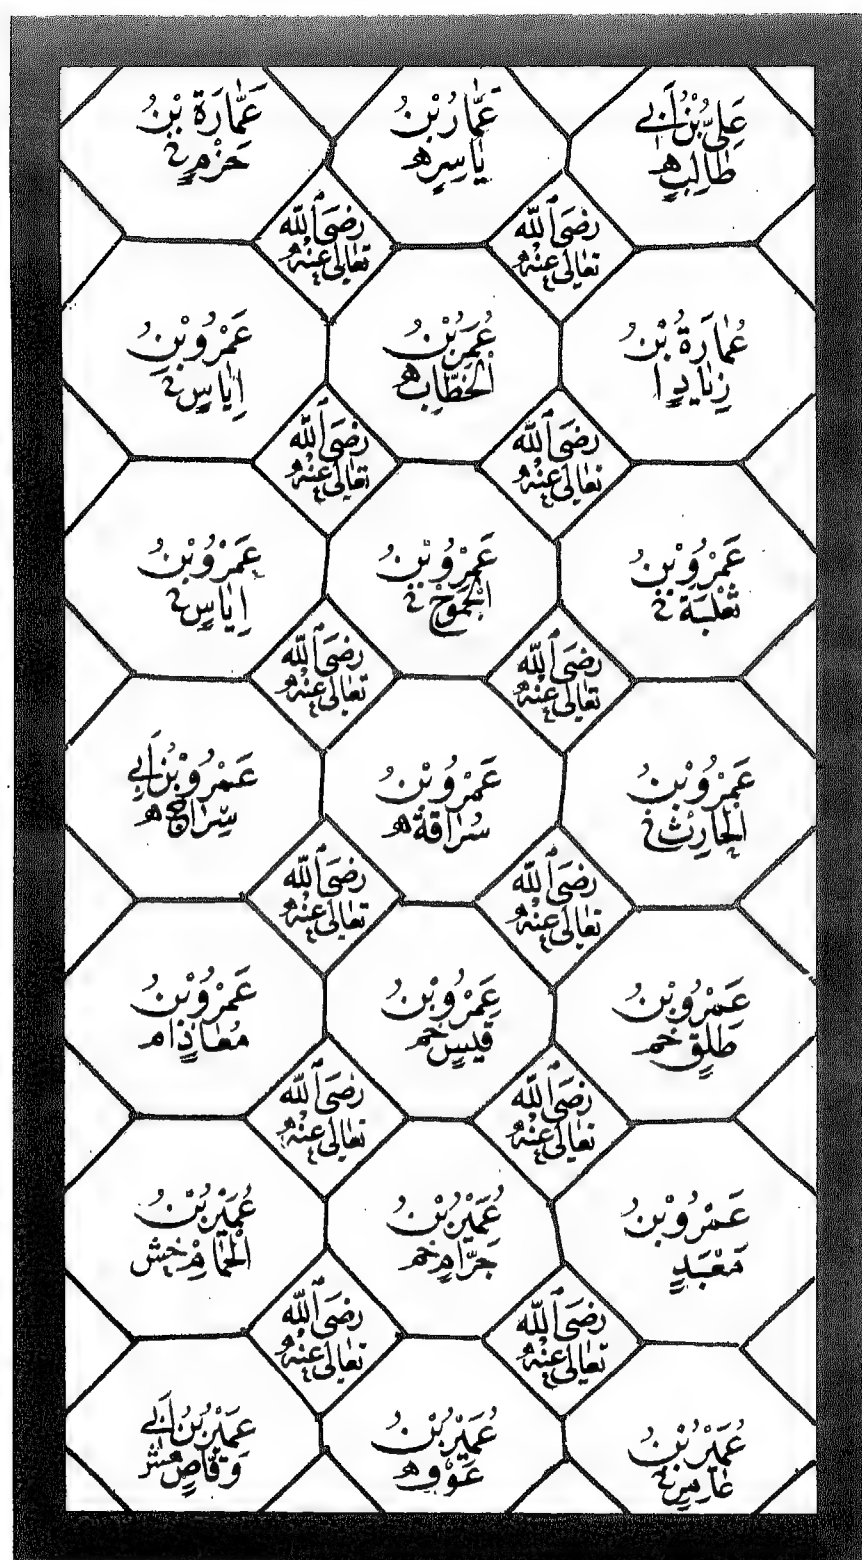 عَلِيُّ بْنُ أَبِي
طَالِبٍ ھ
عَمَّارُ بْنُ
يَاسِرٍ ھ
عَمَّارَةُ بْنُ
حَزْمٍ خ
رَضِيَ اللّٰه
تَعَالٰى عَنْهُ
رَضِيَ اللّٰه
تَعَالٰى عَنْهُ
عُمَارَةُ بْنُ
زِيَادٍ ا
عُمَرُ بْنُ
الْخَطَّابِ ھ
عَمْرُو بْنُ
اِيَاسٍ خ
رَضِيَ اللّٰه
تَعَالٰى عَنْهُ
رَضِيَ اللّٰه
تَعَالٰى عَنْهُ
عَمْرُو بْنُ
ثَعْلَبَةَ خ
عَمْرُو بْنُ
الْجَمُوحِ خ
عَمْرُو بْنُ
اِيَاسٍ خ
رَضِيَ اللّٰه
تَعَالٰى عَنْهُ
رَضِيَ اللّٰه
تَعَالٰى عَنْهُ
عَمْرُو بْنُ
الْحَارِثِ خ
عَمْرُو بْنُ
سُرَاقَةَ ھ
عَمْرُو بْنُ أَبِي
ھ
رَضِيَ اللّٰه
تَعَالٰى عَنْهُ
رَضِيَ اللّٰه
تَعَالٰى عَنْهُ
عَمْرُو بْنُ
طَلِقٍ خم
عَمْرُو بْنُ
قَيْسٍ خم
عَمْرُو بْنُ
مُعَاذٍ ام
رَضِيَ اللّٰه
تَعَالٰى عَنْهُ
رَضِيَ اللّٰه
تَعَالٰى عَنْهُ
عَمْرُو بْنُ
مَعْبَدٍ
عُمَيْرُ بْنُ
حَرَامٍ خم
عُمَيْرُ بْنُ
الْحُمَامِ خش
رَضِيَ اللّٰه
تَعَالٰى عَنْهُ
رَضِيَ اللّٰه
تَعَالٰى عَنْهُ
عُمَيْرُ بْنُ
عَامِرٍ خ
عُمَيْرُ بْنُ
عَوْفٍ ھ
عُمَيْرُ بْنُ أَبِي
وَقَّاصٍ